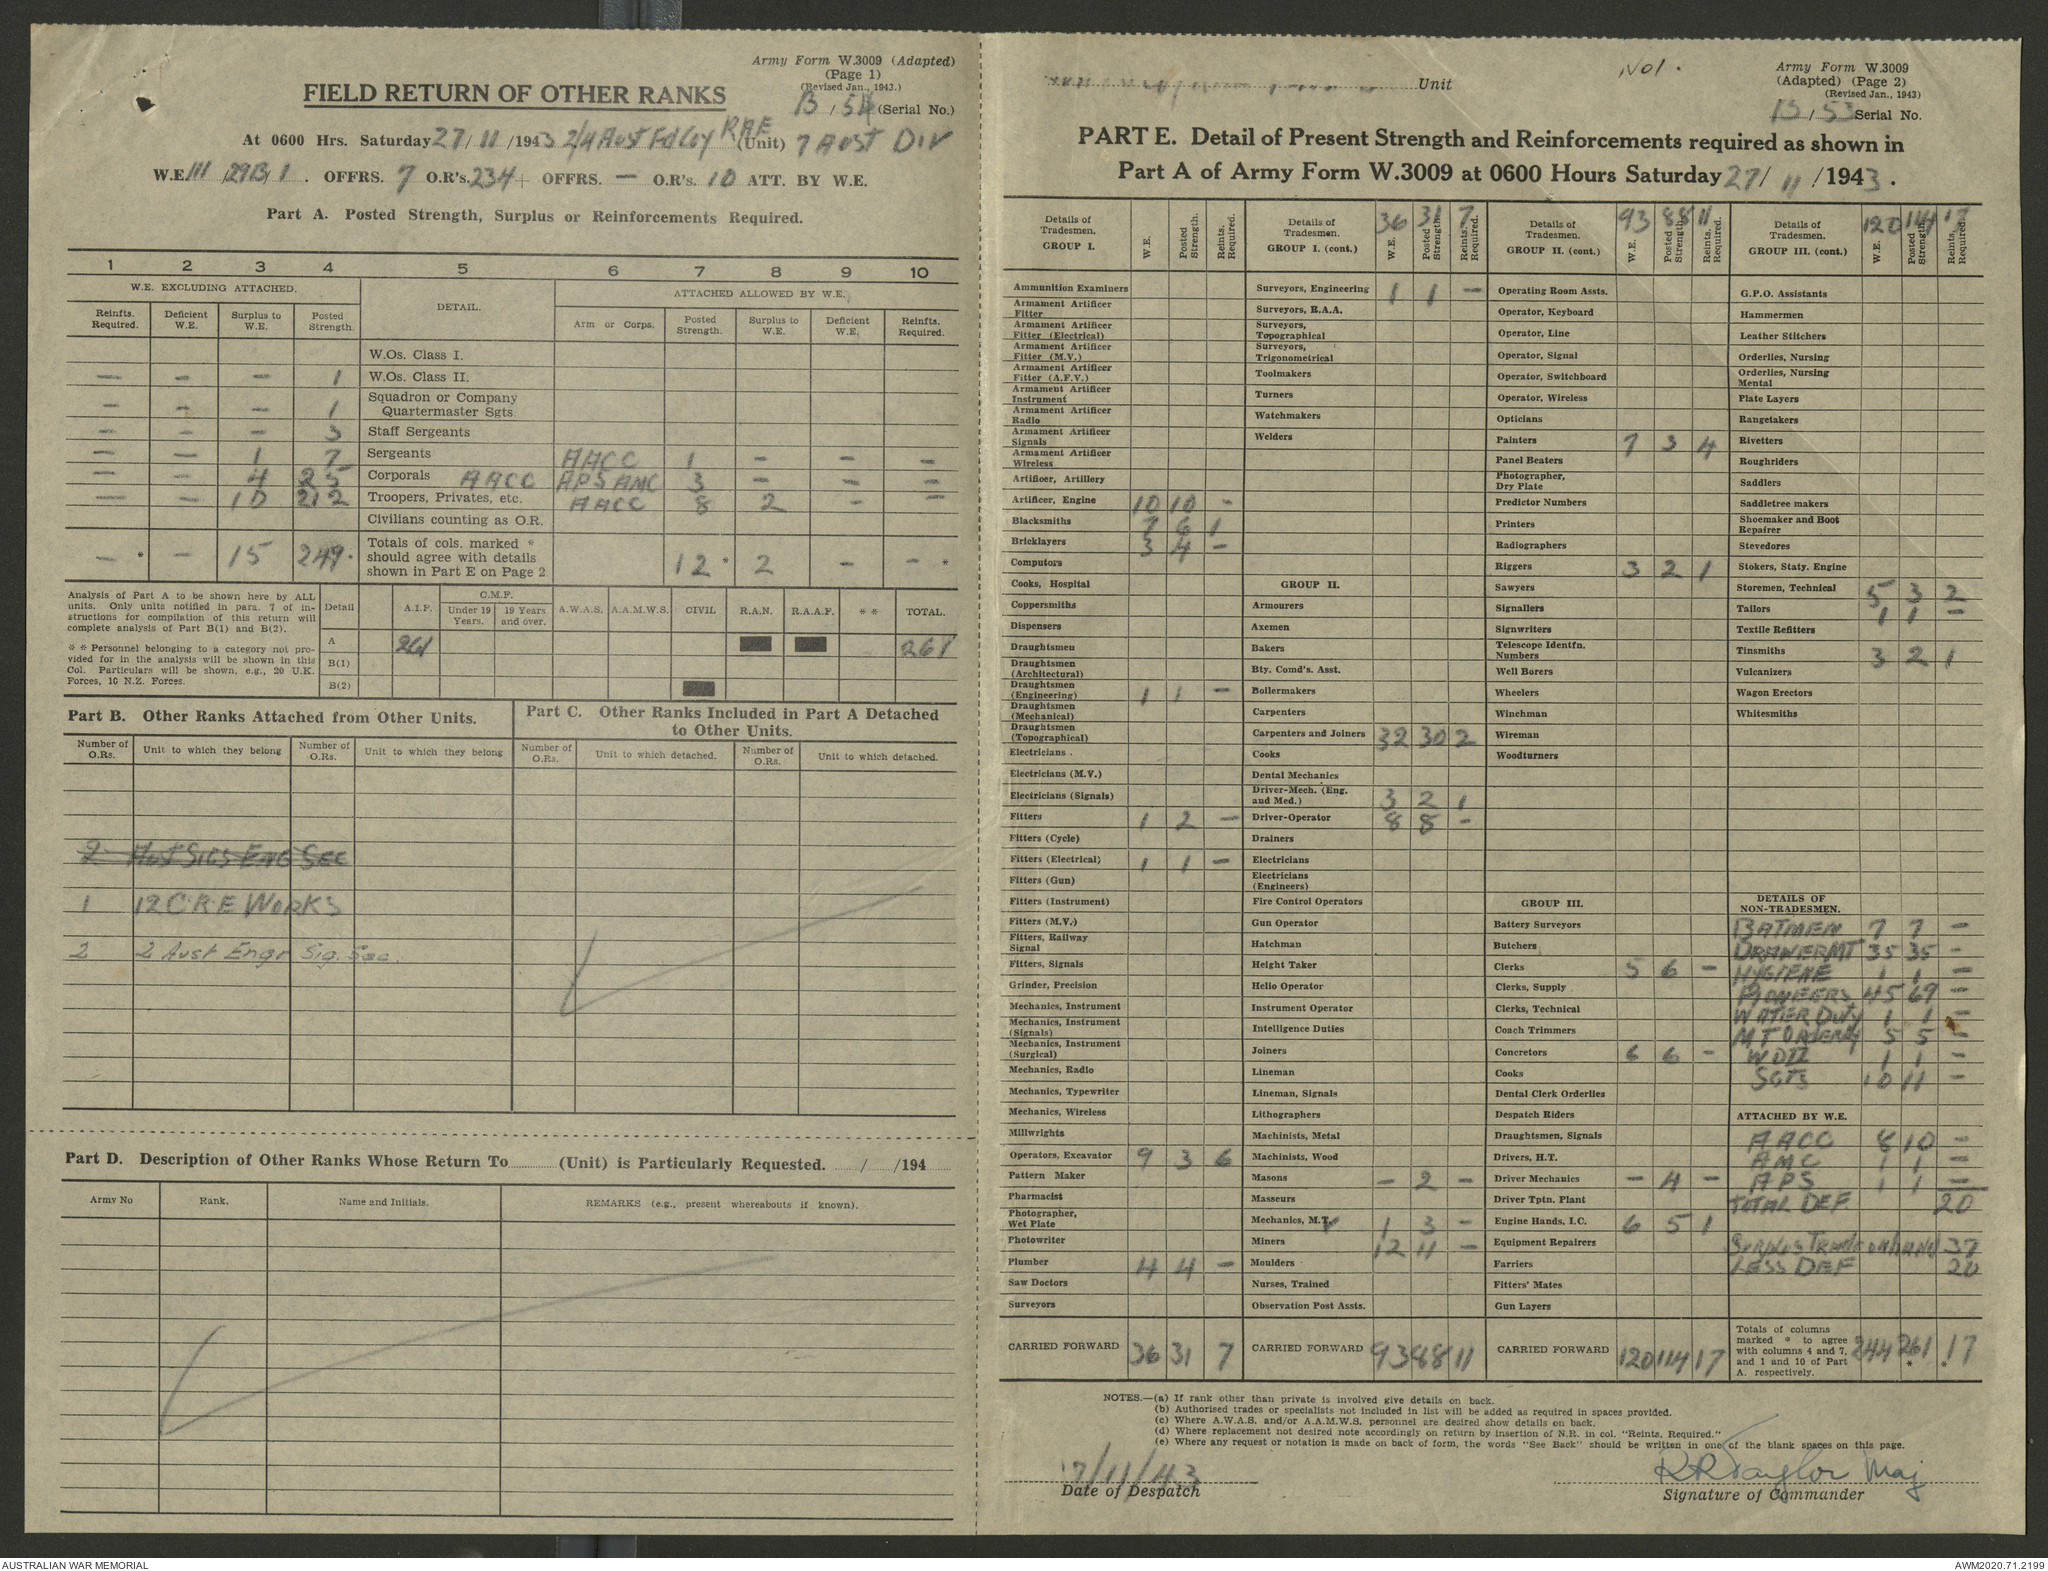 Army Form W.3009 (Adapted)
(Page 1)
(Revised Jan., 1943.)
FIELD RETURN OF OTHER RANKS
B / 54 (Serial No.)
At 0600 Hrs. Saturday 27/ 11 /1943 2/4 Aust Fd Coy RAE (Unit) 7 AUST DIV
W.E. III /29B/ 1 . OFFRS. 7 O.R's. 234 + OFFRS. — O.R's. 10 ATT. BY W.E.
Part A. Posted Strength, Surplus or Reinforcements Required.
1 2 3 4 5 6 7 8 9 10
W.E. EXCLUDING ATTACHED. DETAIL. ATTACHED ALLOWED BY W.E.
Reinfts. Required. Deficient W.E. Surplus to W.E. Posted Strength. Arm or Corps. Posted Strength. Surplus to W.E. Deficient W.E. Reinfts. Required.
W.Os. Class I.
— — — 1 W.Os. Class II.
— — — 1 Squadron or Company Quartermaster Sgts.
— — — 3 Staff Sergeants
— — 1 7 Sergeants AACC 1 — — —
— — 4 25 Corporals AACC APS AMC 3 — — —
— — 10 212 Troopers, Privates, etc. AACC 8 2 — —
Civilians counting as O.R.
— * — 15 249 * Totals of cols. marked * should agree with details shown in Part E on Page 2 12 * 2 — — *
Analysis of Part A to be shown here by ALL units. Only units notified in para. 7 of instructions for compilation of this return will complete analysis of Part B(1) and B(2).
* * Personnel belonging to a category not provided for in the analysis will be shown in this Col. Particulars will be shown, e.g., 20 U.K. Forces, 10 N.Z. Forces.
Detail A.I.F. C.M.F. Under 19 Years. 19 Years and over. A.W.A.S. A.A.M.W.S. CIVIL R.A.N. R.A.A.F. * * TOTAL.
A 261 261
B(1)
B(2)
Part B. Other Ranks Attached from Other Units.
Number of O.Rs. Unit to which they belong Number of O.Rs. Unit to which they belong
2 Aust Sigs Eng Sec
1 12 C.R.E WORKS
2 2 Aust Engr Sig. Sec.
Part C. Other Ranks Included in Part A Detached to Other Units.
Number of O.Rs. Unit to which detached. Number of O.Rs. Unit to which detached.
Part D. Description of Other Ranks Whose Return To (Unit) is Particularly Requested. / /194
Army No Rank. Name and Initials. REMARKS (e.g., present whereabouts if known).
Unit
No1.
Army Form W.3009
(Adapted) (Page 2)
(Revised Jan., 1943)
B / 53 Serial No.
PART E. Detail of Present Strength and Reinforcements required as shown in
Part A of Army Form W.3009 at 0600 Hours Saturday 27/ 11 /1943.
Details of Tradesmen. GROUP I. W.E. Posted Strength. Reints. Required.
Ammunition Examiners
Armament Artificer Fitter
Armament Artificer Fitter (Electrical)
Armament Artificer Fitter (M.V.)
Armament Artificer Fitter (A.F.V.)
Armament Artificer Instrument
Armament Artificer Radio
Armament Artificer Signals
Armament Artificer Wireless
Artificer, Artillery
Artificer, Engine 10 10 —
Blacksmiths 7 6 1
Bricklayers 3 4 —
Computors
Cooks, Hospital
Coppersmiths
Dispensers
Draughtsmen
Draughtsmen (Architectural)
Draughtsmen (Engineering) 1 1 —
Draughtsmen (Mechanical)
Draughtsmen (Topographical)
Electricians .
Electricians (M.V.)
Electricians (Signals)
Fitters 1 2 —
Fitters (Cycle)
Fitters (Electrical) 1 1 —
Fitters (Gun)
Fitters (Instrument)
Fitters (M.V.)
Fitters, Railway Signal
Fitters, Signals
Grinder, Precision
Mechanics, Instrument
Mechanics, Instrument (Signals)
Mechanics, Instrument (Surgical)
Mechanics, Radio
Mechanics, Typewriter
Mechanics, Wireless
Millwrights
Operators, Excavator 9 3 6
Pattern Maker
Pharmacist
Photographer, Wet Plate
Photowriter
Plumber 4 4 —
Saw Doctors
Surveyors
CARRIED FORWARD 36 31 7
Details of Tradesmen. GROUP I. (cont.) 36 31 7 W.E. Posted Strength. Reints. Required.
Surveyors, Engineering 1 1 —
Surveyors, R.A.A.
Surveyors, Topographical
Surveyors, Trigonometrical
Toolmakers
Turners
Watchmakers
Welders
GROUP II.
Armourers
Axemen
Bakers
Bty. Comd's. Asst.
Boilermakers
Carpenters
Carpenters and Joiners 32 30 2
Cooks
Dental Mechanics
Driver-Mech. (Eng. and Med.) 3 2 1
Driver-Operator 8 8 —
Drainers
Electricians
Electricians (Engineers)
Fire Control Operators
Gun Operator
Hatchman
Height Taker
Helio Operator
Instrument Operator
Intelligence Duties
Joiners
Lineman
Lineman, Signals
Lithographers
Machinists, Metal
Machinists, Wood
Masons — 2 —
Masseurs
Mechanics, M.T. 1 3 —
Miners 12 11 —
Moulders
Nurses, Trained
Observation Post Assts.
CARRIED FORWARD 93 88 11
Details of Tradesmen. GROUP II. (cont.) 93 88 11 W.E. Posted Strength. Reints. Required.
Operating Room Assts.
Operator, Keyboard
Operator, Line
Operator, Signal
Operator, Switchboard
Operator, Wireless
Opticians
Painters 7 3 4
Panel Beaters
Photographer, Dry Plate
Predictor Numbers
Printers
Radiographers
Riggers 3 2 1
Sawyers
Signallers
Signwriters
Telescope Identfn. Numbers
Well Borers
Wheelers
Winchman
Wireman
Woodturners
GROUP III.
Battery Surveyors
Butchers
Clerks 5 6 —
Clerks, Supply
Clerks, Technical
Coach Trimmers
Concretors 6 6 —
Cooks
Dental Clerk Orderlies
Despatch Riders
Draughtsmen, Signals
Drivers, H.T.
Driver Mechanics — 4 —
Driver Tptn. Plant
Engine Hands, I.C. 6 5 1
Equipment Repairers
Farriers
Fitters' Mates
Gun Layers
CARRIED FORWARD 120 114 17
Details of Tradesmen. GROUP III. (cont.) 120 114 17 W.E. Posted Strength. Reints. Required.
G.P.O. Assistants
Hammermen
Leather Stitchers
Orderlies, Nursing
Orderlies, Nursing Mental
Plate Layers
Rangetakers
Rivetters
Roughriders
Saddlers
Saddletree makers
Shoemaker and Boot Repairer
Stevedores
Stokers, Staty. Engine
Storemen, Technical 5 3 2
Tailors 1 1 —
Textile Refitters
Tinsmiths 3 2 1
Vulcanizers
Wagon Erectors
Whitesmiths
DETAILS OF NON-TRADESMEN.
BATMEN 7 7 —
DRAWERMT 35 35 —
HYGIENE 1 1 —
PIONEERS 45 69 —
WATER DUTY 1 1 —
MT ORDERLY 5 5 —
WOII 1 1 —
SGTS 10 11 —
ATTACHED BY W.E.
AACC 8 10 —
AMC 1 1 —
APS 1 1 —
TOTAL DEF 20
SURPLUS TRADE on hand 37
LESS DEF 20
Totals of columns marked * to agree with columns 4 and 7, and 1 and 10 of Part A. respectively. 244 261 * 17 *
NOTES.—(a) If rank other than private is involved give details on back.
(b) Authorised trades or specialists not included in list will be added as required in spaces provided.
(c) Where A.W.A.S. and/or A.A.M.W.S. personnel are desired show details on back.
(d) Where replacement not desired note accordingly on return by insertion of N.R. in col. "Reints. Required."
(e) Where any request or notation is made on back of form, the words "See Back" should be written in one of the blank spaces on this page.
7/11/43
Date of Despatch
RRTaylor Maj
Signature of Commander
AUSTRALIAN WAR MEMORIAL
AWM2020.71.2199